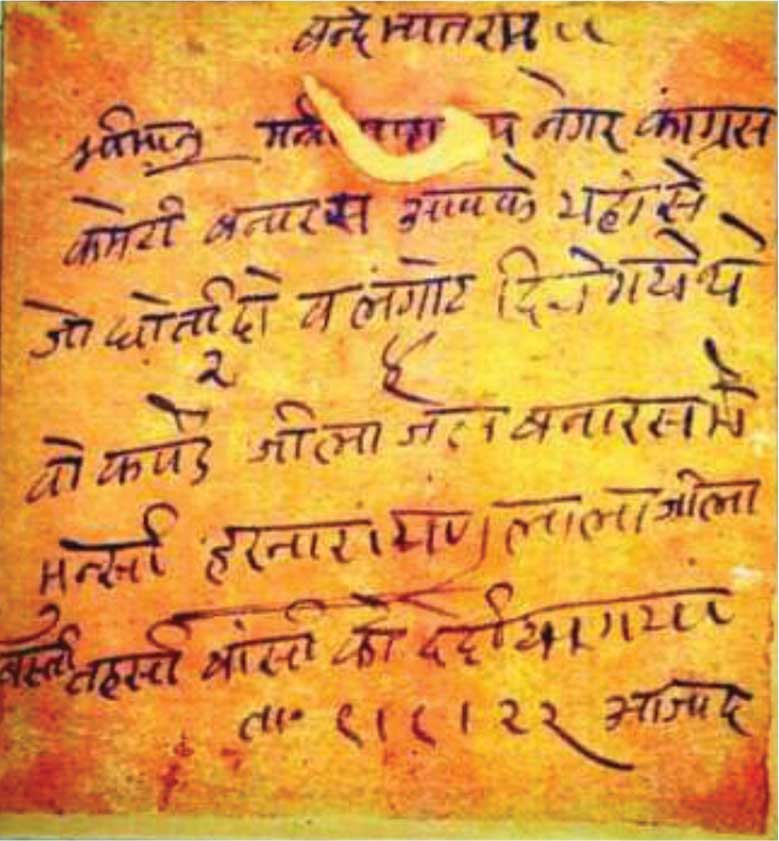 बन्देमातरम ।।
श्रीमान् मन्त्री नगर कांग्रेस
कमेटी बनारस आपके यहां से
जो धोती दो व लंगोट दिये गये थे
२
वो कपड़े जीला जेल बनारस में
मुन्सी हरनारायण लाला जीला
बस्ती तहसी बांसी को दे दीया गया
ता॰ १।१।२२ आजाद